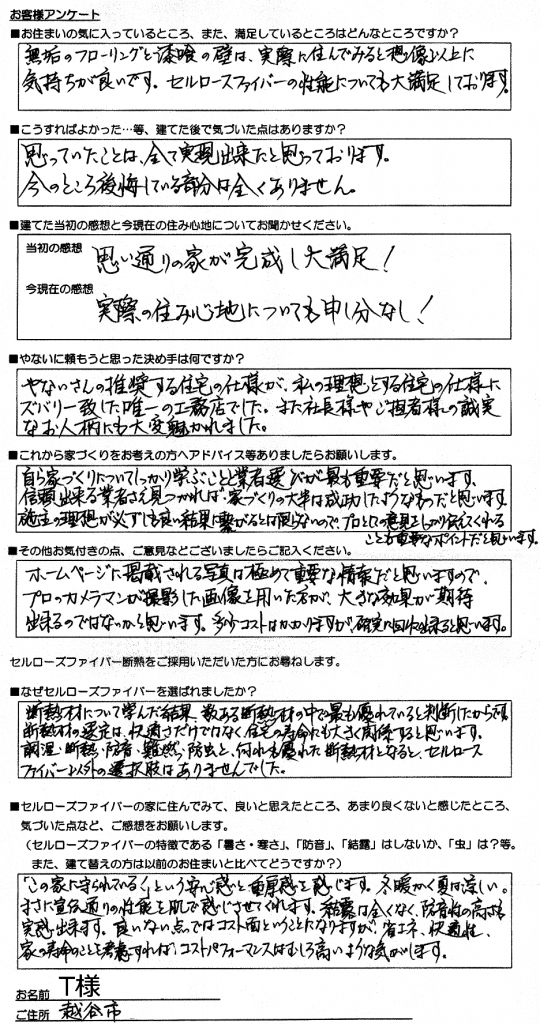 お客様アンケート
■お住まいの気に入っているところ、また、満足しているところはどんなところですか?
無垢のフローリングと漆喰の壁は、実際に住んでみると想像以上に
気持ちが良いです。セルロースファイバーの性能についても大満足しております。
■こうすればよかった…等、建てた後で気づいた点はありますか?
思っていたことは、全て実現出来たと思っております。
今のところ後悔している部分は全くありません。
■建てた当初の感想と今現在の住み心地についてお聞かせください。
当初の感想 思い通りの家が完成し大満足!
今現在の感想
実際の住み心地についても申し分なし!
■やないに頼もうと思った決め手は何ですか?
やないさんの推奨する住宅の仕様が、私の理想とする住宅の仕様に
ズバリ一致した唯一の工務店でした。また社長様やご担者様の誠実
なお人柄にも大変魅かれました。
■これから家づくりをお考えの方へアドバイス等ありましたらお願いします。
自ら家づくりについてしっかり学ぶことと業者選びが最も重要だと思います。
信頼出来る業者さえ見つかれば、家づくりの大半は成功したようなものだと思います。
施主の理想が必ずしも良い結果に繋がるとは限らないので、プロとしての意見をしっかり伝えてくれる
ことも重要なポイントだと思います。
■その他お気付きの点、ご意見などございましたらご記入ください。
ホームページに掲載される写真は極めて重要な情報だと思いますので、
プロのカメラマンが撮影した画像を用いた方が、大きな効果が期待
出来るのではないかと思います。多少コストはかかりますが、確実に回収出来ると思います。
セルローズファイバー断熱をご採用いただいた方にお尋ねします。
■なぜセルローズファイバーを選ばれましたか?
断熱材について学んだ結果、数ある断熱材の中で最も優れていると判断したからです。
断熱材の選定は、快適さだけではなく住宅の寿命にも大きく関係すると思います。
調湿・断熱・防音・難燃・防虫と、何れも優れた断熱材となると、セルロース
ファイバー以外の選択肢はありませんでした。
■セルローズファイバーの家に住んでみて、良いと思えたところ、あまり良くないと感じたところ、
気づいた点など、ご感想をお願いします。
(セルローズファイバーの特徴である「暑さ・寒さ」、「防音」、「結露」はしないか、「虫」は?等。
また、建て替えの方は以前のお住まいと比べてどうですか?)
「この家に守られている」という安心感と重厚感を感じます。冬暖かく夏は涼しい。
まさに宣伝通りの性能を肌で感じさせてくれます。結露は全くなく、防音性の高さも
実感出来ます。良くない点ではコスト面ということになりますが、省エネ、快適性、
家の寿命のことを考慮すれば、コストパフォーマンスはむしろ高いような気がします。
お名前 T様
ご住所 越谷市